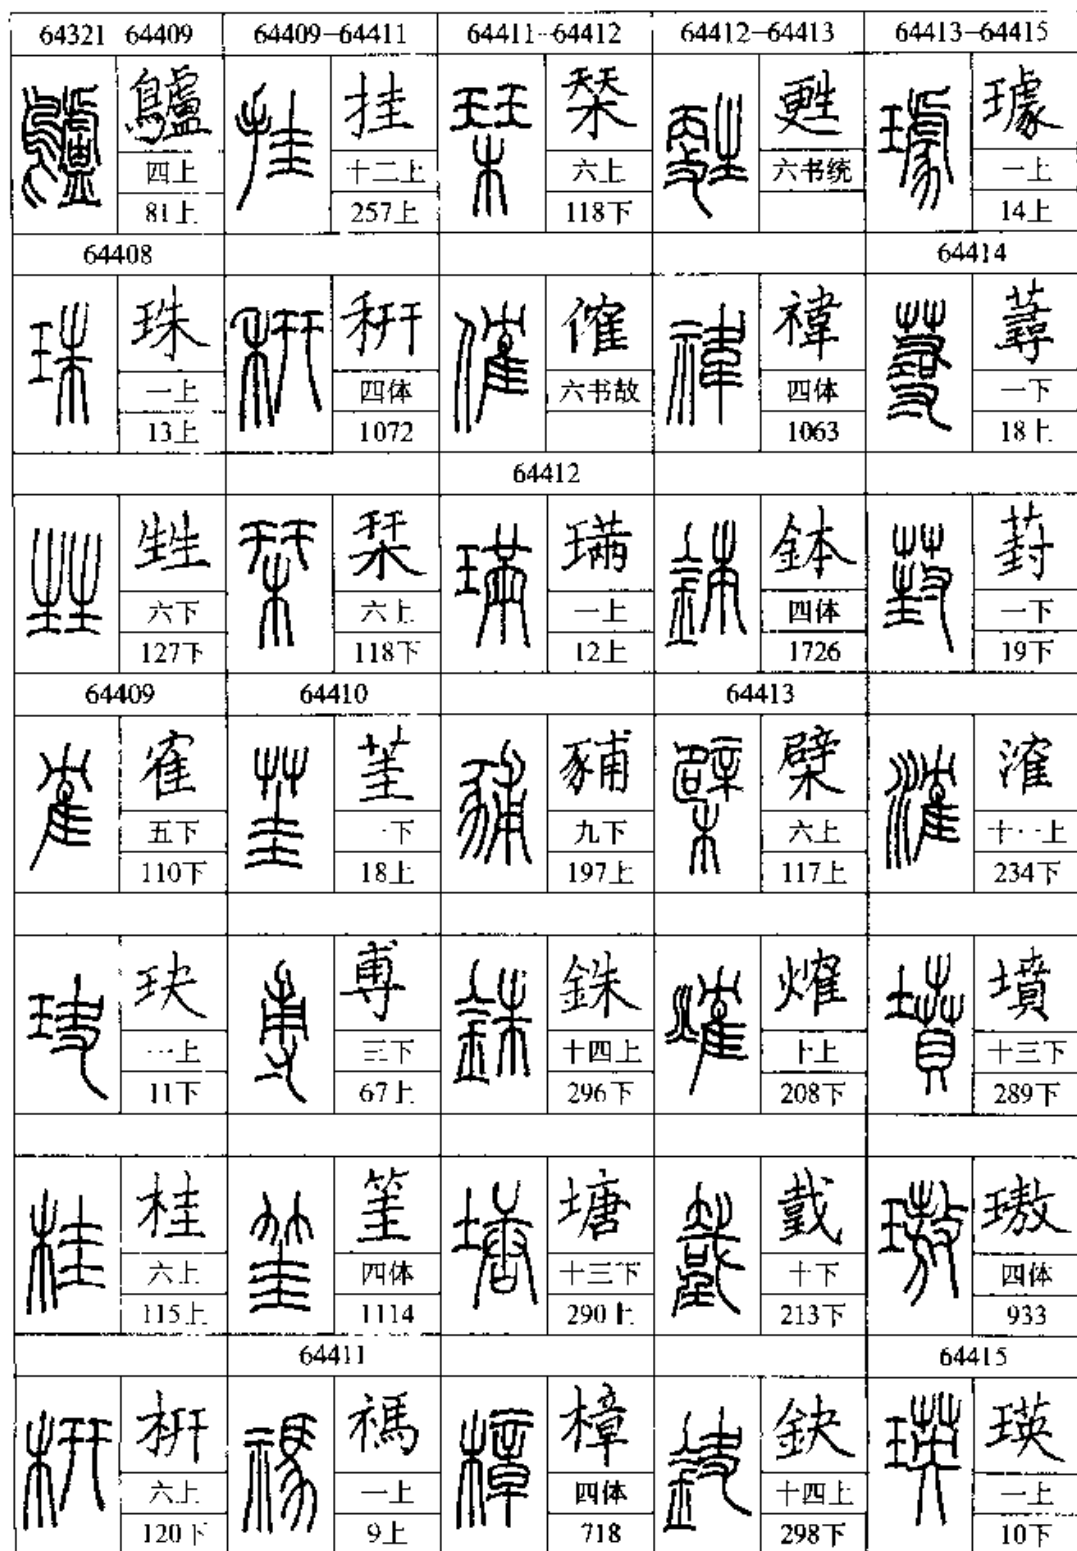 64321 64409
鸕
四上
81上
64408
珠
一上
13上
甡
六下
127下
64409
隺
五下
110下
玦
一上
11下
桂
六上
115上
枅
六上
120下
64409-64411
挂
十二上
257上
四体
1072
六上
118下
64410
茥
一下
18上
尃
三下
67上
筀
四体
1114
64411
禡
一上
9上
64411-64412
六上
118下
傕
六书故
64412
一上
12上
九下
197上
銖
十四上
296下
塘
十三下
290上
樟
四体
718
64412-64413
甦
六书统
禕
四体
1063
鉢
四体
1726
64413
檗
六上
117上
熣
十上
208下
十下
213下
鈌
十四上
298下
64413-64415
璩
一上
14上
64414
蕁
一下
18上
葑
一下
19下
滖
十一上
234下
墳
十三下
289下
璈
四体
933
64415
瑛
一上
10下